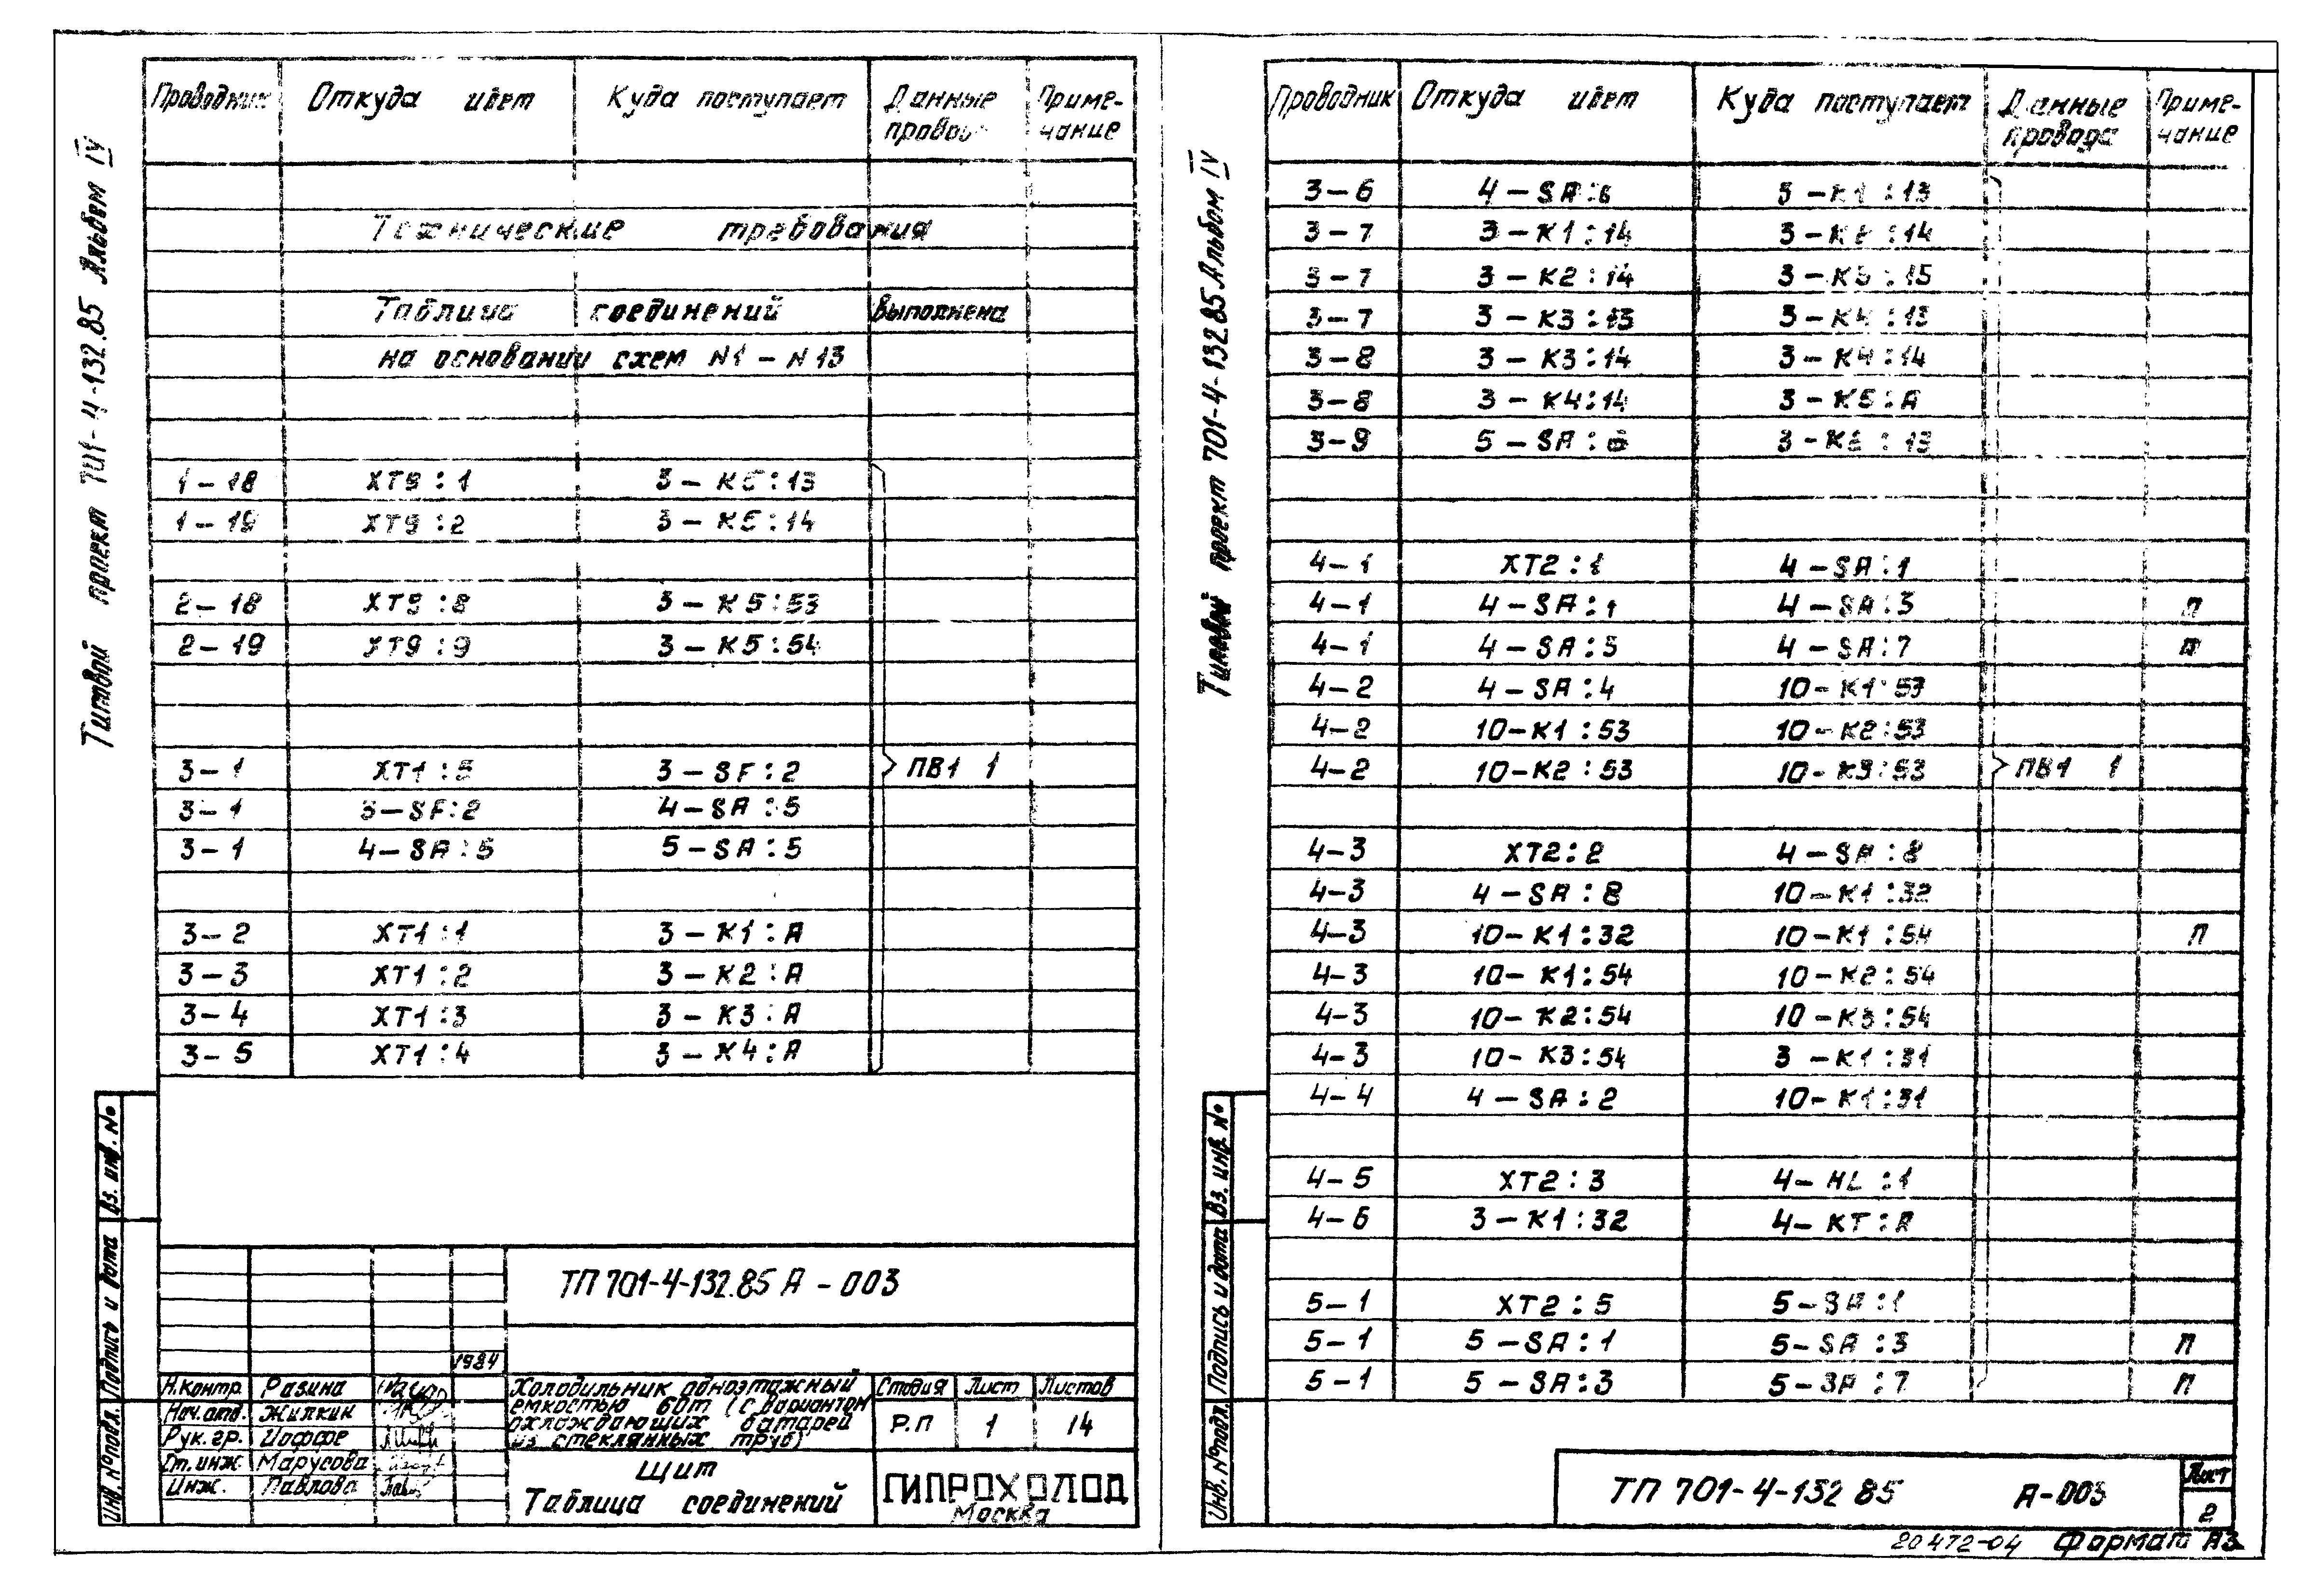 Типовой проект 701-4-132.85 Альбом IV
Проводник Откуда идет Куда поступает Данные провода Примечание
Технические требования
Таблица соединений выполнена
на основании схем N1 - N13
1-18 XT9:1 3-K5:13
1-19 XT9:2 3-K5:14
2-18 XT9:8 3-K5:53
2-19 XT9:9 3-K5:54
3-1 XT1:5 3-SF:2 ПВ1 1
3-1 3-SF:2 4-SA:5
3-1 4-SA:5 5-SA:5
3-2 XT1:1 3-K1:A
3-3 XT1:2 3-K2:A
3-4 XT1:3 3-K3:A
3-5 XT1:4 3-K4:A
Инв. № подл. Подпись и дата Вз. инв. №
ТП 701-4-132.85 А-003
1984
Н.контр. Разина
Нач.отд. Жилкин
Рук.гр. Иоффе
Ст.инж. Марусова
Инж. Павлова
Холодильник одноэтажный
емкостью 60т (с вариантом
охлаждающих батарей
из стеклянных труб)
Стадия Лист Листов
Р.П 1 14
Щит
Таблица соединений
ГИПРОХОЛОД
Москва
Типовой проект 701-4-132.85 Альбом IV
Проводник Откуда идет Куда поступает Данные провода Примечание
3-6 4-SA:6 3-K1:13
3-7 3-K1:14 3-K2:14
3-7 3-K2:14 3-K3:13
3-7 3-K3:13 3-K4:13
3-8 3-K3:14 3-K4:14
3-8 3-K4:14 3-K5:A
3-9 5-SA:6 3-K2:13
4-1 XT2:1 4-SA:1
4-1 4-SA:1 4-SA:3 п
4-1 4-SA:3 4-SA:7 п
4-2 4-SA:4 10-K1:53
4-2 10-K1:53 10-K2:53
4-2 10-K2:53 10-K3:53 ПВ1 1
4-3 XT2:2 4-SA:8
4-3 4-SA:8 10-K1:32
4-3 10-K1:32 10-K1:54 п
4-3 10-K1:54 10-K2:54
4-3 10-K2:54 10-K3:54
4-3 10-K3:54 3-K1:31
4-4 4-SA:2 10-K1:31
4-5 XT2:3 4-HL:1
4-6 3-K1:32 4-KT:A
5-1 XT2:5 5-SA:1
5-1 5-SA:1 5-SA:3 п
5-1 5-SA:3 5-SA:7 п
Инв. № подл. Подпись и дата Вз. инв. №
ТП 701-4-132.85 А-003
Лист
2
20472-04 Формат А3